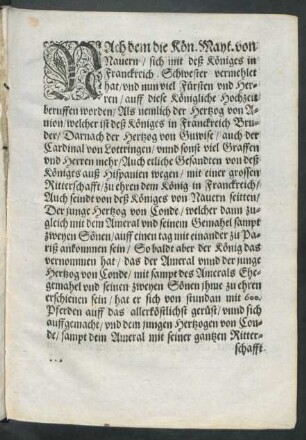 NAch dem die Kön. Mayt. von
Nauern / sich mit deß Königes in
Franckreich Schwester vermehlet
hat / vnd nun viel Fürsten vnd Her-
ren / auff diese Königliche Hochzeit
beruffen worden / Als nemlich der Hertzog von A-
nion / welcher ist deß Königes in Franckreich Bru-
der / Darnach der Hertzog von Guwise / auch der
Cardinal von Lottringen / vnnd sonst viel Graffen
vnd Herren mehr / Auch etliche Gesandten von deß
Königes auß Hispanien wegen / mit einer grossen
Ritterschafft / zu ehren dem König in Franckreich /
Auch seindt von deß Königes von Nauern seitten /
Der junge Hertzog von Conde / welcher dann zu-
gleich mit dem Ameral vnd seinem Gemahel sampt
zweyen Sönen / auff einen tag mit einander zu Pa-
riß ankommen sein / So bald aber der König das
vernommen hat / das der Ameral vnnd der junge
Hertzog von Conde / mit sampt des Amerals Ehe-
gemahel vnd seinen zweyen Sönen ihme zu ehren
erschienen sein / hat er sich von stundan mit 600.
Pferden auff das allerköstlichst gerüst / vnnd sich
auffgemacht / vnd dem jungen Hertzogen von Con-
de / sampt dem Ameral mit seiner gantzen Ritter-
schafft